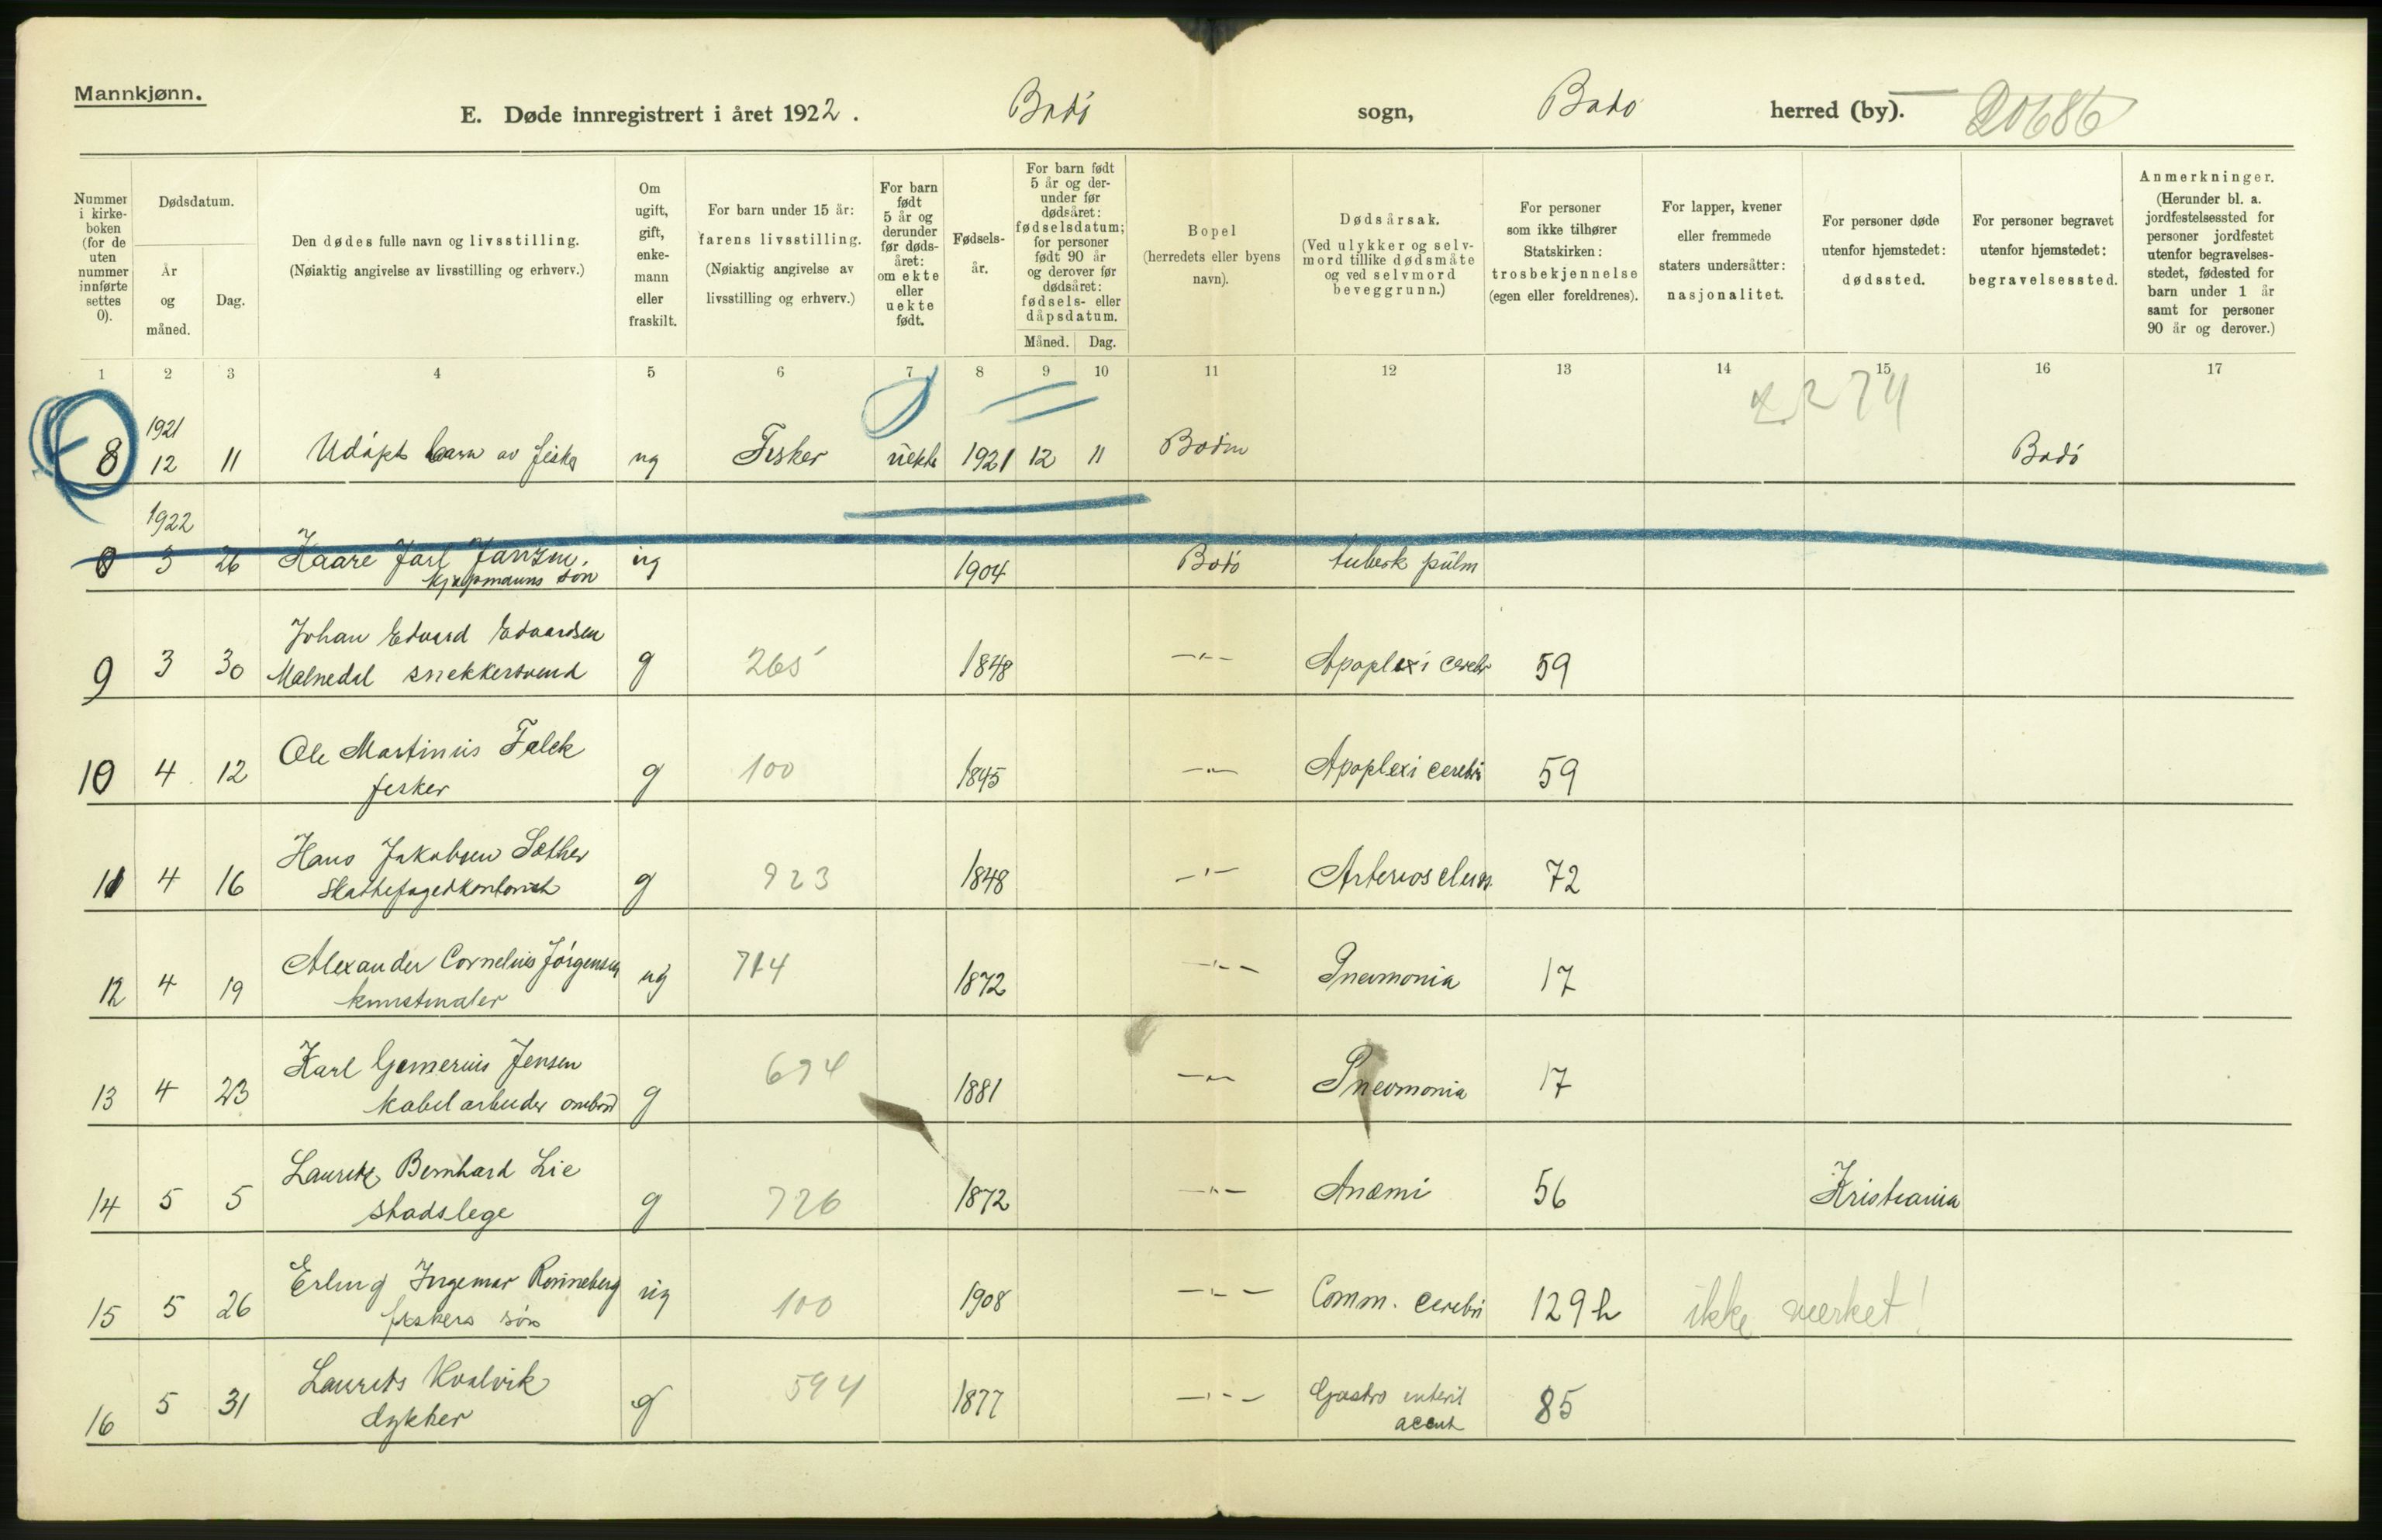 Mannkjønn.
E. Døde innregistrert i året 1922. Bodø sogn, Bodø herred (by). 20686
Nummer i kirke- boken (for de uten nummer innførte settes 0).
Dødsdatum.
År og måned.
Dag.
Den dødes fulle navn og livsstilling.
(Nøiaktig angivelse av livsstilling og erhverv.)
Om ugift, gift, enke- mann eller fraskilt.
For barn under 15 år:
farens livsstilling.
(Nøiaktig angivelse av
livsstilling og erhverv.)
For barn født 5 år og derunder før døds- året: om ekte eller uekte født.
Fødsels- år.
For barn født 5 år og der- under før dødsåret: fødselsdatum; for personer født 90 år og derover før dødsåret: fødsels- eller dåpsdatum.
Måned. Dag.
Bopel
(herredets eller byens
navn).
Dødsårsak.
(Ved ulykker og selv- mord tillike dødsmåte og ved selvmord beveggrunn.)
For personer som ikke tilhører Statskirken: trosbekjennelse (egen eller foreldrenes).
For lapper, kvener eller fremmede staters undersåtter: nasjonalitet.
For personer døde utenfor hjemstedet: dødssted.
For personer begravet utenfor hjemstedet: begravelsessted.
Anmerkninger.
(Herunder bl. a. jordfestelsessted for personer jordfestet utenfor begravelses- stedet, fødested for barn under 1 år samt for personer 90 år og derover.)
1 2 3 4 5 6 7 8 9 10 11 12 13 14 15 16 17
1921
8 12 11 Udøpt barn av fisker ug Fisker uekte 1921 12 11 Bodin Bodø
1922
0 3 26 Haare Jarl Jansen, ug 1904 Bodø tuberk pulm
kjøpmanns søn
Johan Edvard Edvardsen
9 3 30 Malnedal snekkersvend g 265 1848 -"- Apoplexi cerebr 59
Ole Martinus Falck
10 4 12 fisker g 100 1845 -"- Apoplexi cerebri 59
Hans Jakobsen Sæther
11 4 16 Skattefogedkontorist g 923 1848 -"- 72
Alexander Cornelius Jørgensen
12 4 19 kunstmaler ug 714 1872 -"- Pneumonia 17
Karl Jensen
13 4 23 kabelarbeider g 694 1881 -"- Pneumonia 17
Laurits Bernhard Lie
14 5 5 stadslege g 726 1872 -"- Anæmi 56 Kristiania
Erling Ingemar Rønneberg
15 5 26 fiskers søn ug 100 1908 -"- Comm. cerebri 129 h ikke merket!
Laurits Kvalvik
16 5 31 dykker g 594 1877 -"- Gastro enterit 85
acut